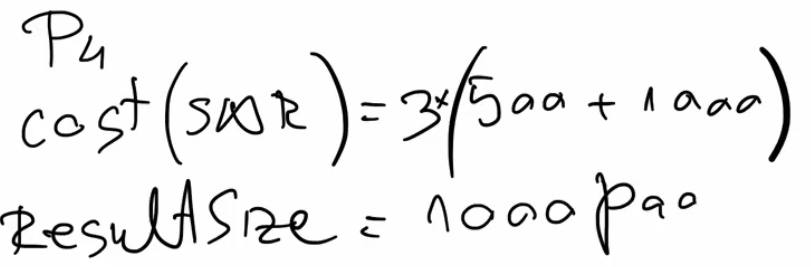 P4
cost(S⋈R) = 3*(500 + 1000)
ResultSize = 1000 pag